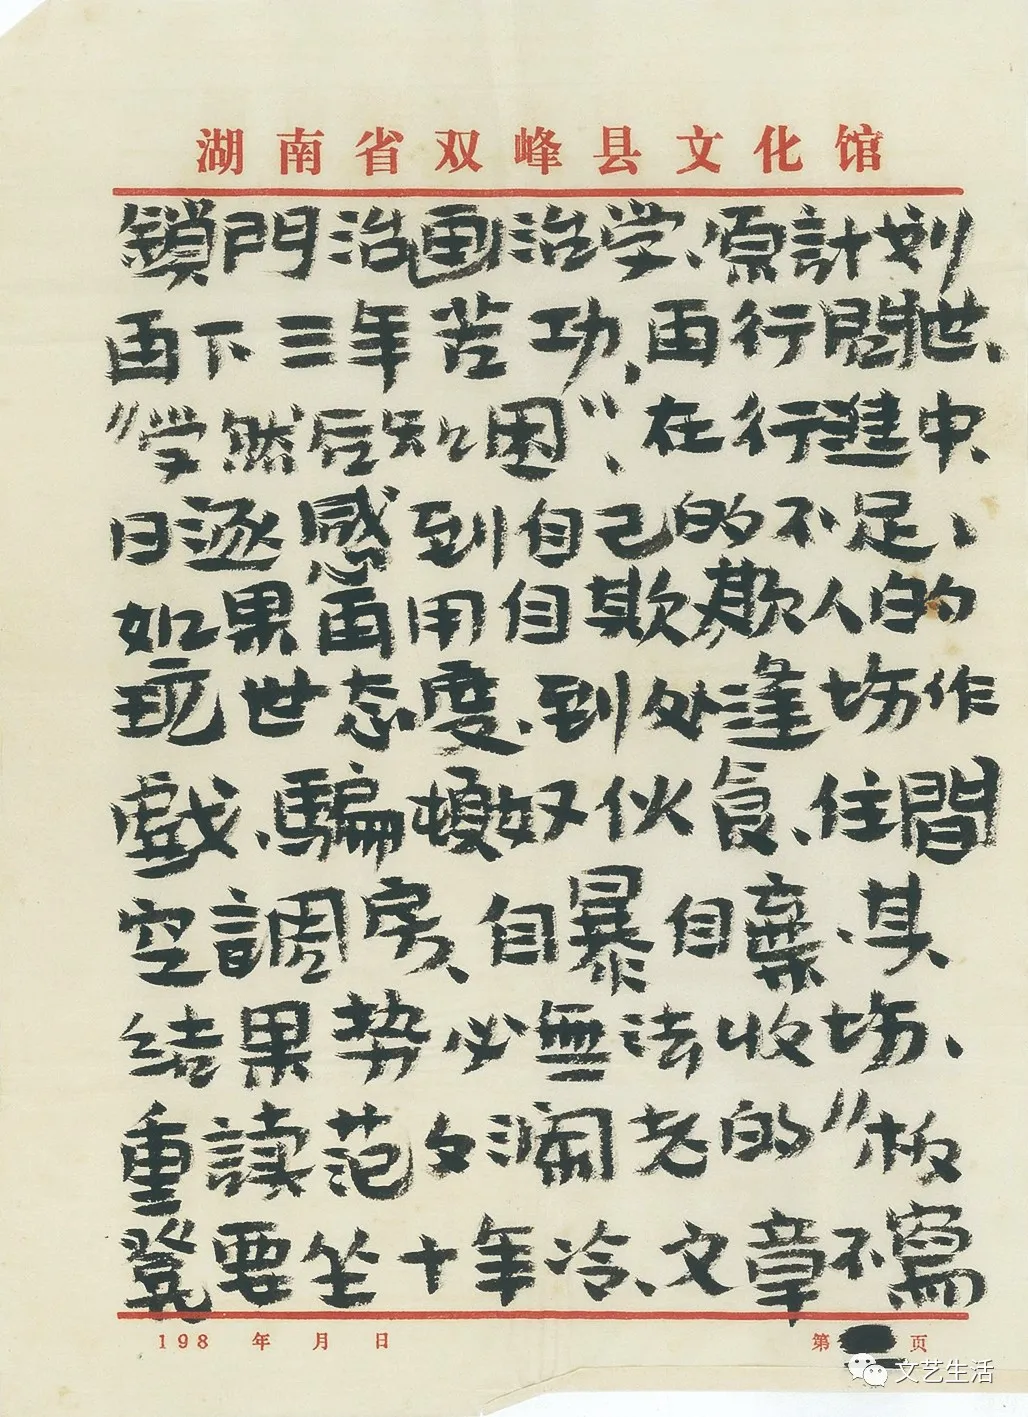 湖南省双峰县文化馆
鎖門治画治学、原計划
再下三年苦功、再行閱世、
“学然后知困”、在行進中、
日逐感到自己的不足、
如果再用自欺欺人的
玩世态度、到处逢场作
戲、騙頓好伙食、住間
空調房、自暴自棄、其
结果势必無法收场、
重读范文澜老的“板
凳要坐十年冷、文章不寫
198 年 月 日 第二页
文艺生活